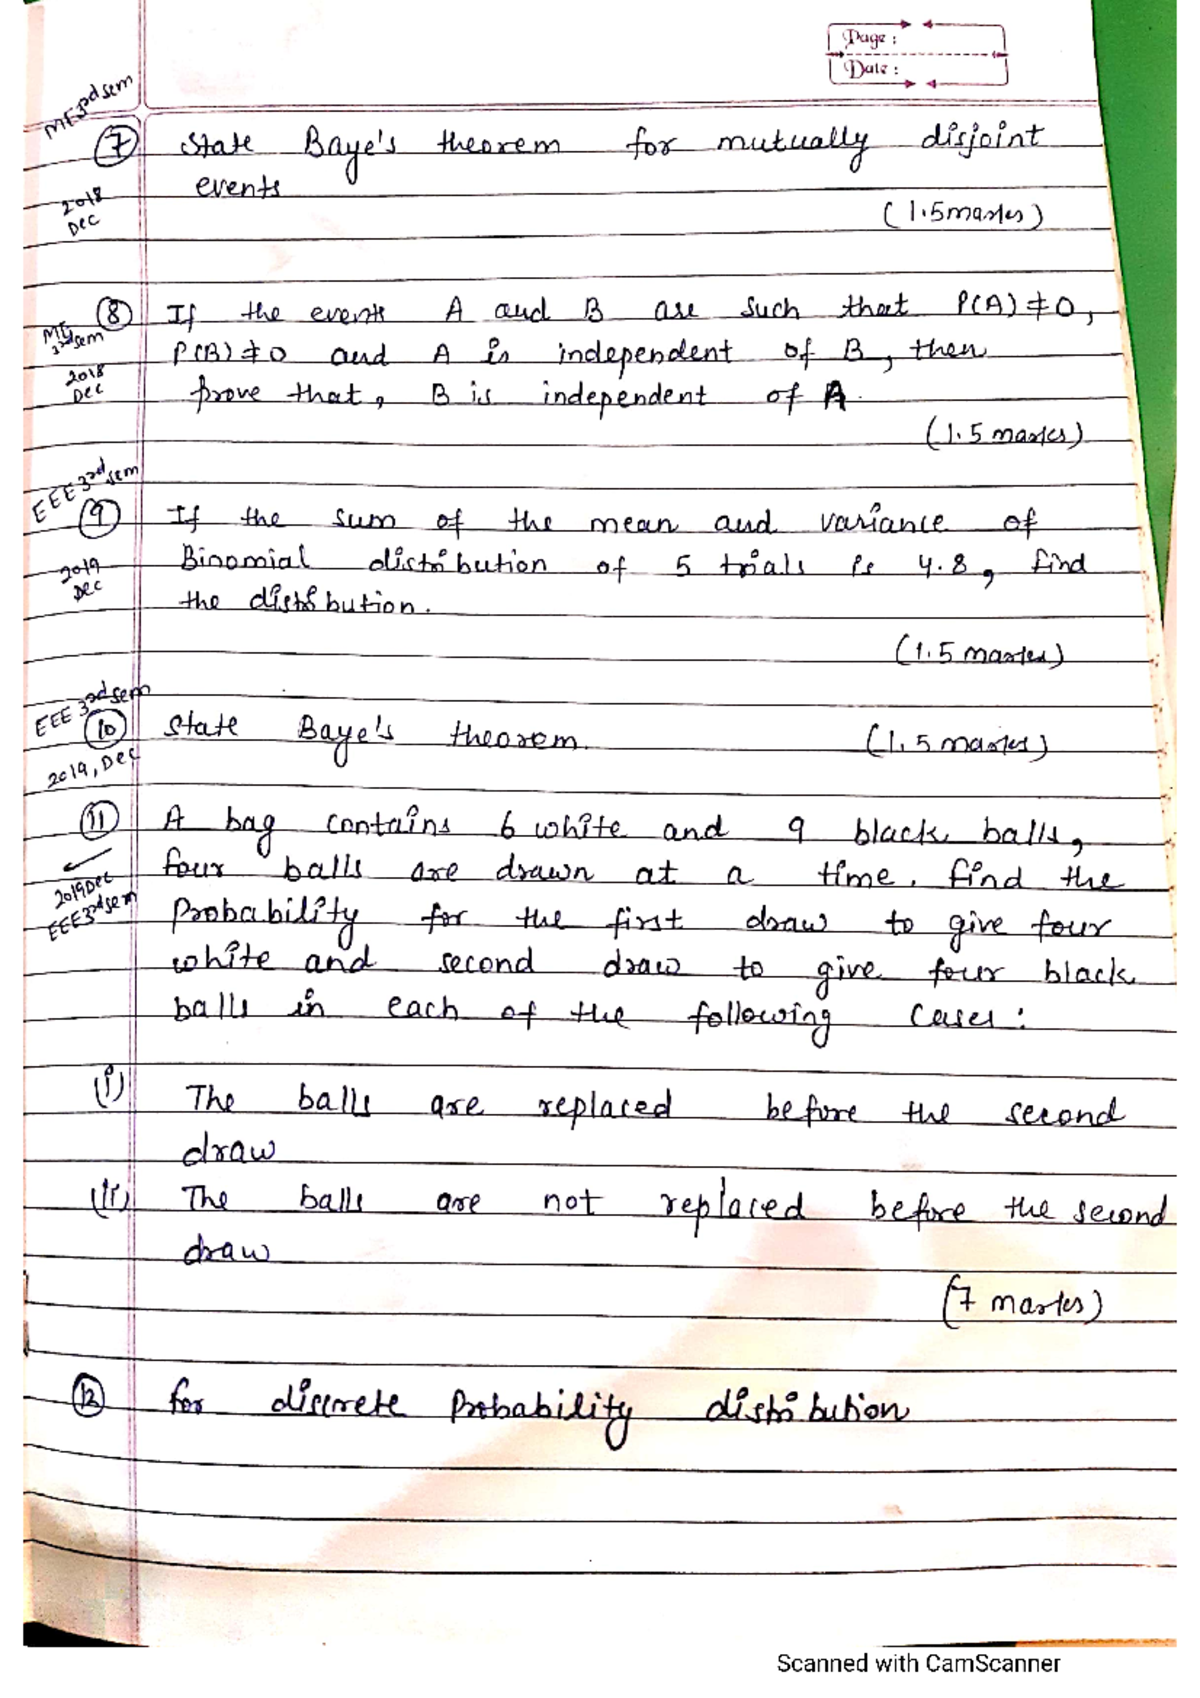 Page :
Date :
ME 3rd sem
(7) State Baye's theorem for mutually disjoint
events
2018
Dec
(1.5 marks)
(8) If the events A and B are such that P(A) ≠ 0,
ME
3rd sem
P(B) ≠ 0 and A is independent of B, then
2018
Dec
prove that, B is independent of A.
(1.5 marks)
EEE 3rd sem
(9) If the sum of the mean and variance of
Binomial distribution of 5 trials is 4.8, find
2019
Dec
the distribution.
(1.5 marks)
EEE 3rd sem
(10) State Baye's theorem. (1.5 marks)
2019, Dec
(11) A bag contains 6 white and 9 black balls,
four balls are drawn at a time. find the
2019 Dec
EEE 3rd sem
Probability for the first draw to give four
white and second draw to give four black
balls in each of the following cases :
(i) The balls are replaced before the second
draw
(ii) The balls are not replaced before the second
draw
(7 marks)
(12) for discrete Probability distribution
Scanned with CamScanner